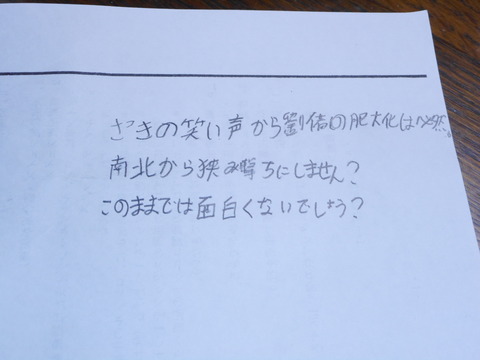 さきの笑い声から劉備の肥大化は必然。
南北から挟み撃ちにしません？
このままでは面白くないでしょう？